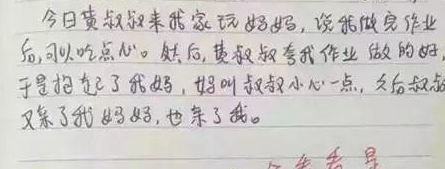 今日黄叔叔来我家玩妈妈,说我做完作业
后,可以吃点心。然后,黄叔叔夸我作业做的好,
于是抱起了我妈,妈叫叔叔小心一点,之后叔叔
又亲了我妈妈,也亲了我。